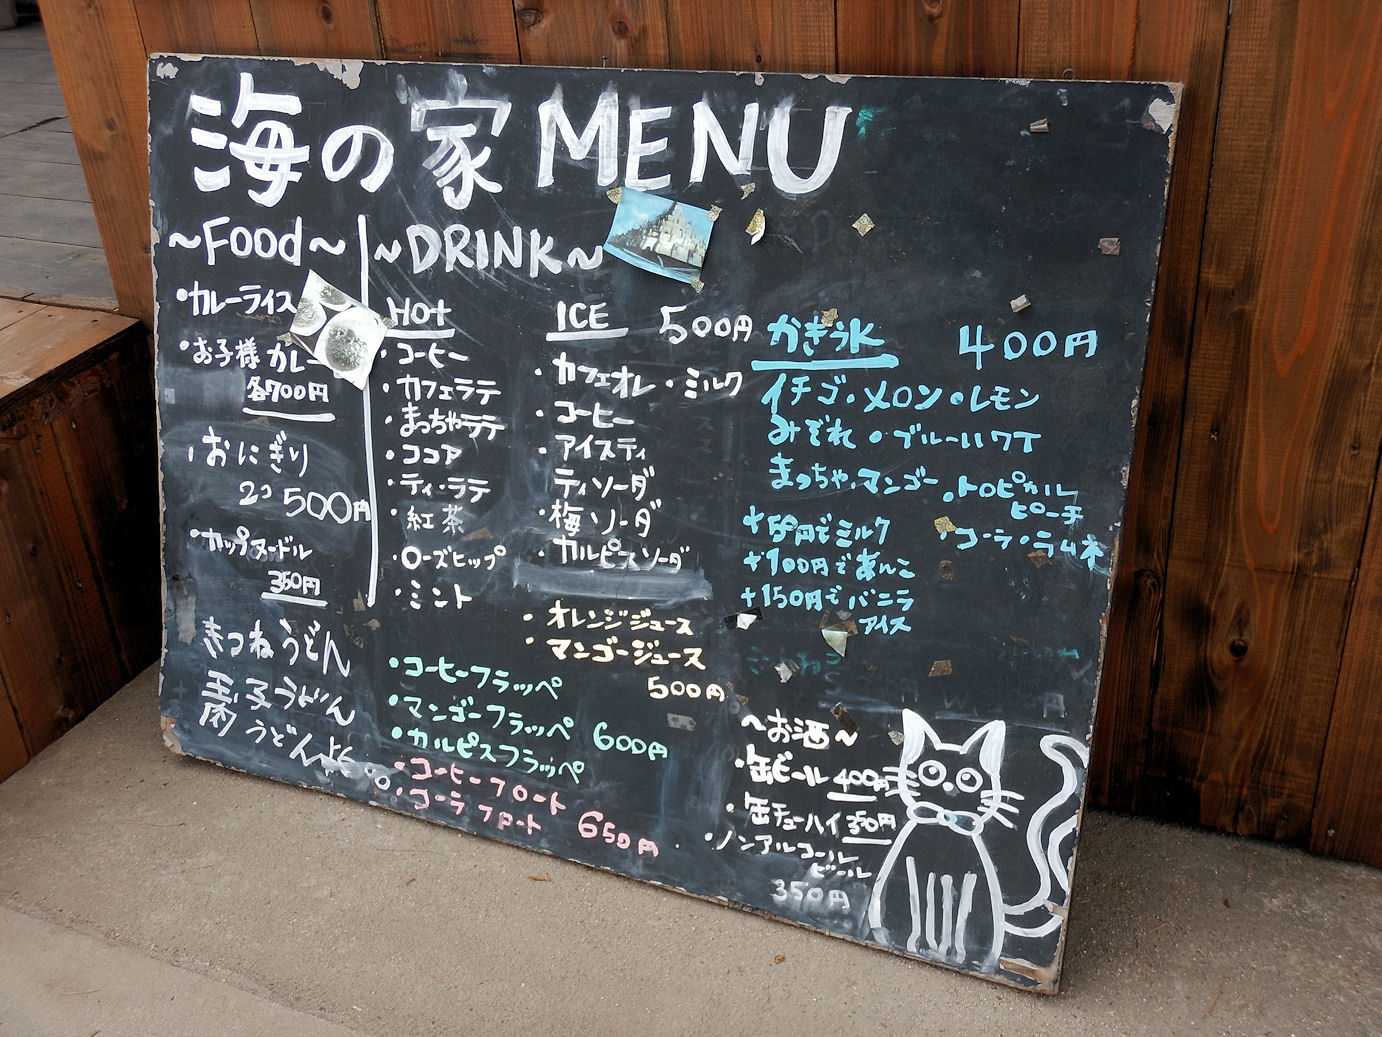 海の家 MENU
~Food~
・カレーライス
・お子様カレー
各700円
・おにぎり
2コ 500円
・カップヌードル
350円
きつねうどん
玉子うどん
肉うどん
~DRINK~
HOt
・コーヒー
・カフェラテ
・まっちゃラテ
・ココア
・ティ・ラテ
・紅茶
・ローズヒップ
・ミント
ICE 500円
・カフェオレ ・ミルク
・コーヒー
・アイスティ
ティソーダ
・梅ソーダ
・カルピスソーダ
・オレンジジュース
・マンゴージュース
500円
・コーヒーフラッペ
・マンゴーフラッペ 600円
・カルピスフラッペ
・コーヒーフロート
・コーラフロート 650円
かき氷 400円
イチゴ・メロン・レモン
みぞれ・ブルーハワイ
まっちゃ・マンゴー・トロピカル
ピーチ
・コーラ・ラムネ
+50円でミルク
+100円であんこ
+150円でバニラ
アイス
~お酒~
・缶ビール 400円
・缶チューハイ 350円
・ノンアルコール
ビール
350円